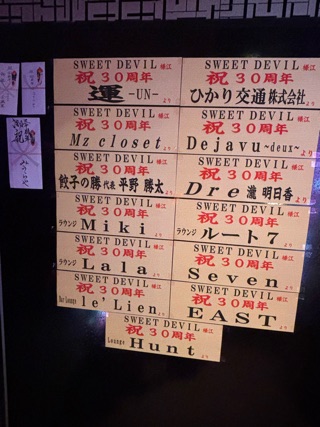 SWEET DEVIL 椿江
祝 30周年
運 -UN- より
SWEET DEVIL 椿江
祝 30周年
ひかり交通株式会社 より
SWEET DEVIL 椿江
祝 30周年
Mz closet より
SWEET DEVIL 椿江
祝 30周年
Dejavu~deux~ より
SWEET DEVIL 椿江
祝 30周年
餃子の勝 代表 平野 勝太 より
SWEET DEVIL 椿江
祝 30周年
Dre 瀧 明日香 より
SWEET DEVIL 椿江
祝 30周年
ラウンジ Miki より
SWEET DEVIL 椿江
祝 30周年
ラウンジ ルート7 より
SWEET DEVIL 椿江
祝 30周年
ラウンジ Lala より
SWEET DEVIL 椿江
祝 30周年
Seven より
SWEET DEVIL 椿江
祝 30周年
Bar Lounge le'Lien より
SWEET DEVIL 椿江
祝 30周年
EAST より
SWEET DEVIL 椿江
祝 30周年
Lounge Hunt より